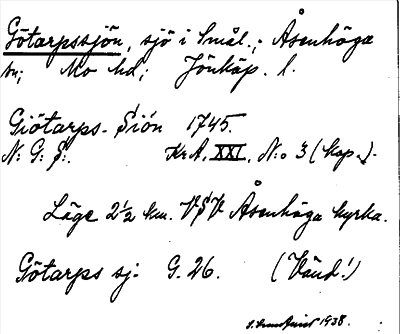 Götarpssjön, sjö i Smål.; Åsenhöga
sn; Mo hd; Jönköp. l.
Giötarps-Siön 1745.
N: G: S:. KrA, XXI, N:o 3 (kop.).
Läge 2½ km. VSV Åsenhöga kyrka.
Götarps sj: G. 26. (Vänd!)
1938.